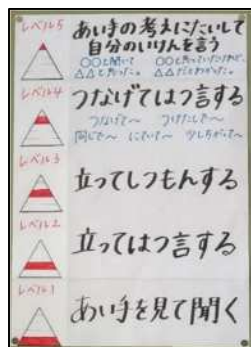 レベル5
あい手の考えにたいして
自分のいけんを言う
○○と聞いて ○○と思っていたけれど、
△△と思った。 △△だとわかった。
レベル4
つなげてはつ言する
つなげて〜 つけたして〜
同じで〜 にていて〜 少しちがって〜
レベル3
立ってしつもんする
レベル2
立ってはつ言する
レベル1
あい手を見て聞く